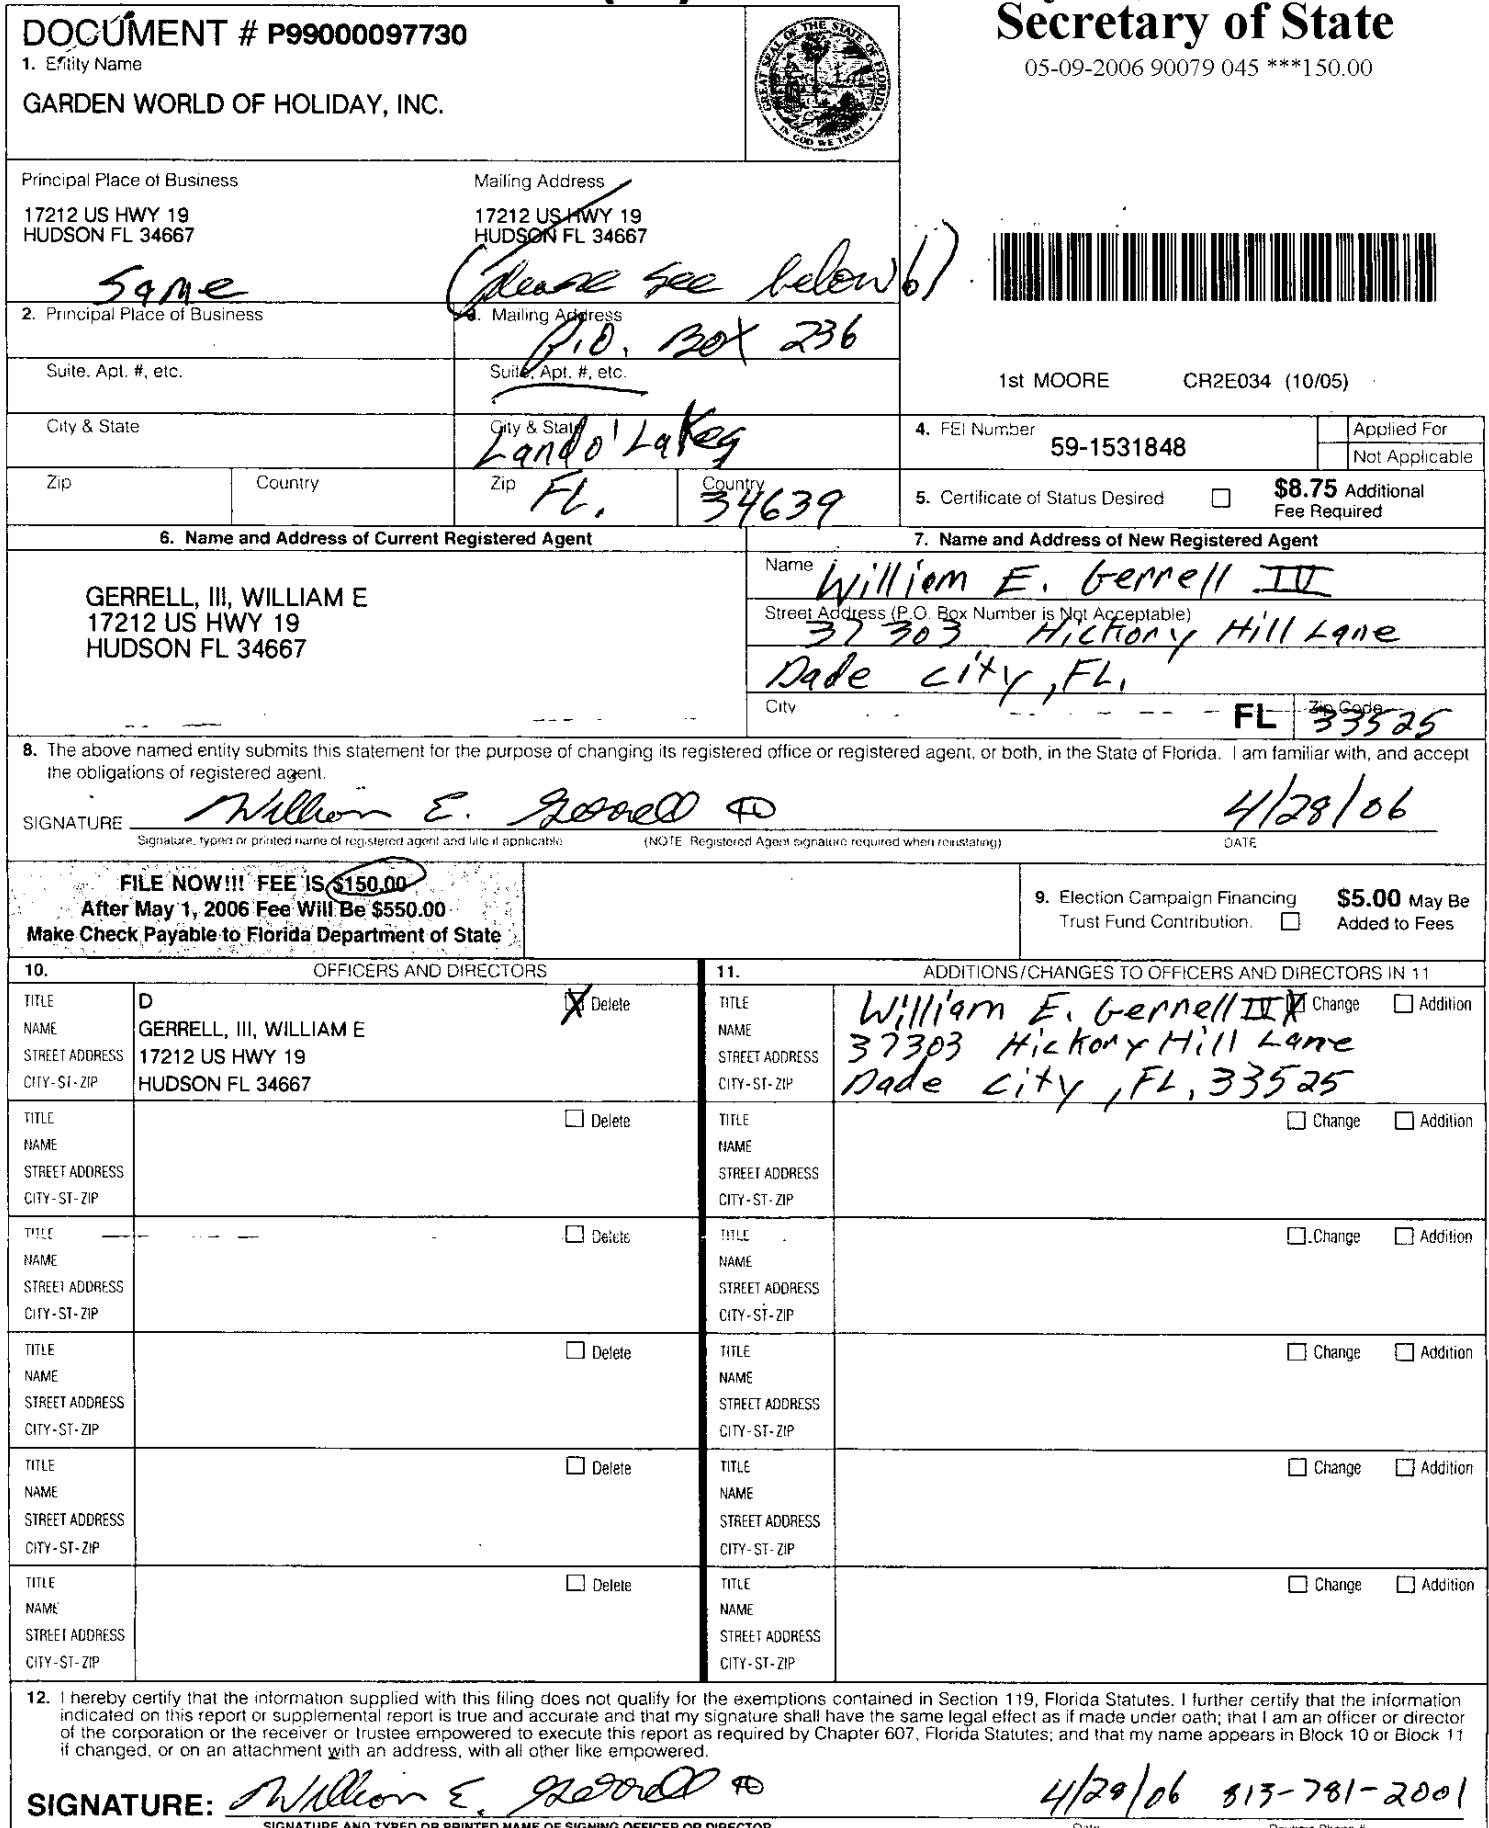 Secretary of State
05-09-2006 90079 045 ***150.00
DOCUMENT # P99000097730
1. Entity Name
GARDEN WORLD OF HOLIDAY, INC.
GREAT SEAL OF THE STATE OF FLORIDA
IN GOD WE TRUST
Principal Place of Business
17212 US HWY 19
HUDSON FL 34667
Same
Mailing Address
17212 US HWY 19
HUDSON FL 34667
(please see below)
2. Principal Place of Business
3. Mailing Address
P.O. Box 236
Suite. Apt. #, etc.
Suite, Apt. #, etc.
1st MOORE CR2E034 (10/05)
City & State
City & State
Land o' Lakes
4. FEI Number
59-1531848
Applied For
Not Applicable
Zip
Country
Zip
FL.
Country
34639
5. Certificate of Status Desired
$8.75 Additional
Fee Required
6. Name and Address of Current Registered Agent
GERRELL, III, WILLIAM E
17212 US HWY 19
HUDSON FL 34667
7. Name and Address of New Registered Agent
Name
William E. Gerrell IV
Street Address (P.O. Box Number is Not Acceptable)
37303 Hickory Hill Lane
Dade City, FL.
City
FL
Zip Code
33525
8. The above named entity submits this statement for the purpose of changing its registered office or registered agent, or both, in the State of Florida. I am familiar with, and accept
the obligations of registered agent.
SIGNATURE William E. Gerrell 4/28/06
Signature, typed or printed name of registered agent and title if applicable
(NOTE Registered Agent signature required when reinstating)
DATE
FILE NOW!!! FEE IS $150.00
After May 1, 2006 Fee Will Be $550.00
Make Check Payable to Florida Department of State
9. Election Campaign Financing
Trust Fund Contribution.
$5.00 May Be
Added to Fees
10. OFFICERS AND DIRECTORS
11. ADDITIONS/CHANGES TO OFFICERS AND DIRECTORS IN 11
TITLE D X Delete
NAME GERRELL, III, WILLIAM E
STREET ADDRESS 17212 US HWY 19
CITY-ST-ZIP HUDSON FL 34667
TITLE William E. Gerrell IV X Change Addition
NAME
STREET ADDRESS 37303 Hickory Hill Lane
CITY-ST-ZIP Dade City, FL, 33525
TITLE Delete
NAME
STREET ADDRESS
CITY-ST-ZIP
TITLE Change Addition
NAME
STREET ADDRESS
CITY-ST-ZIP
TITLE Delete
NAME
STREET ADDRESS
CITY-ST-ZIP
TITLE Change Addition
NAME
STREET ADDRESS
CITY-ST-ZIP
TITLE Delete
NAME
STREET ADDRESS
CITY-ST-ZIP
TITLE Change Addition
NAME
STREET ADDRESS
CITY-ST-ZIP
TITLE Delete
NAME
STREET ADDRESS
CITY-ST-ZIP
TITLE Change Addition
NAME
STREET ADDRESS
CITY-ST-ZIP
TITLE Delete
NAME
STREET ADDRESS
CITY-ST-ZIP
TITLE Change Addition
NAME
STREET ADDRESS
CITY-ST-ZIP
12. I hereby certify that the information supplied with this filing does not qualify for the exemptions contained in Section 119, Florida Statutes. I further certify that the information
indicated on this report or supplemental report is true and accurate and that my signature shall have the same legal effect as if made under oath; that I am an officer or director
of the corporation or the receiver or trustee empowered to execute this report as required by Chapter 607, Florida Statutes; and that my name appears in Block 10 or Block 11
if changed, or on an attachment with an address, with all other like empowered.
SIGNATURE: William E. Gerrell 4/28/06 813-781-2001
SIGNATURE AND TYPED OR PRINTED NAME OF SIGNING OFFICER OR DIRECTOR